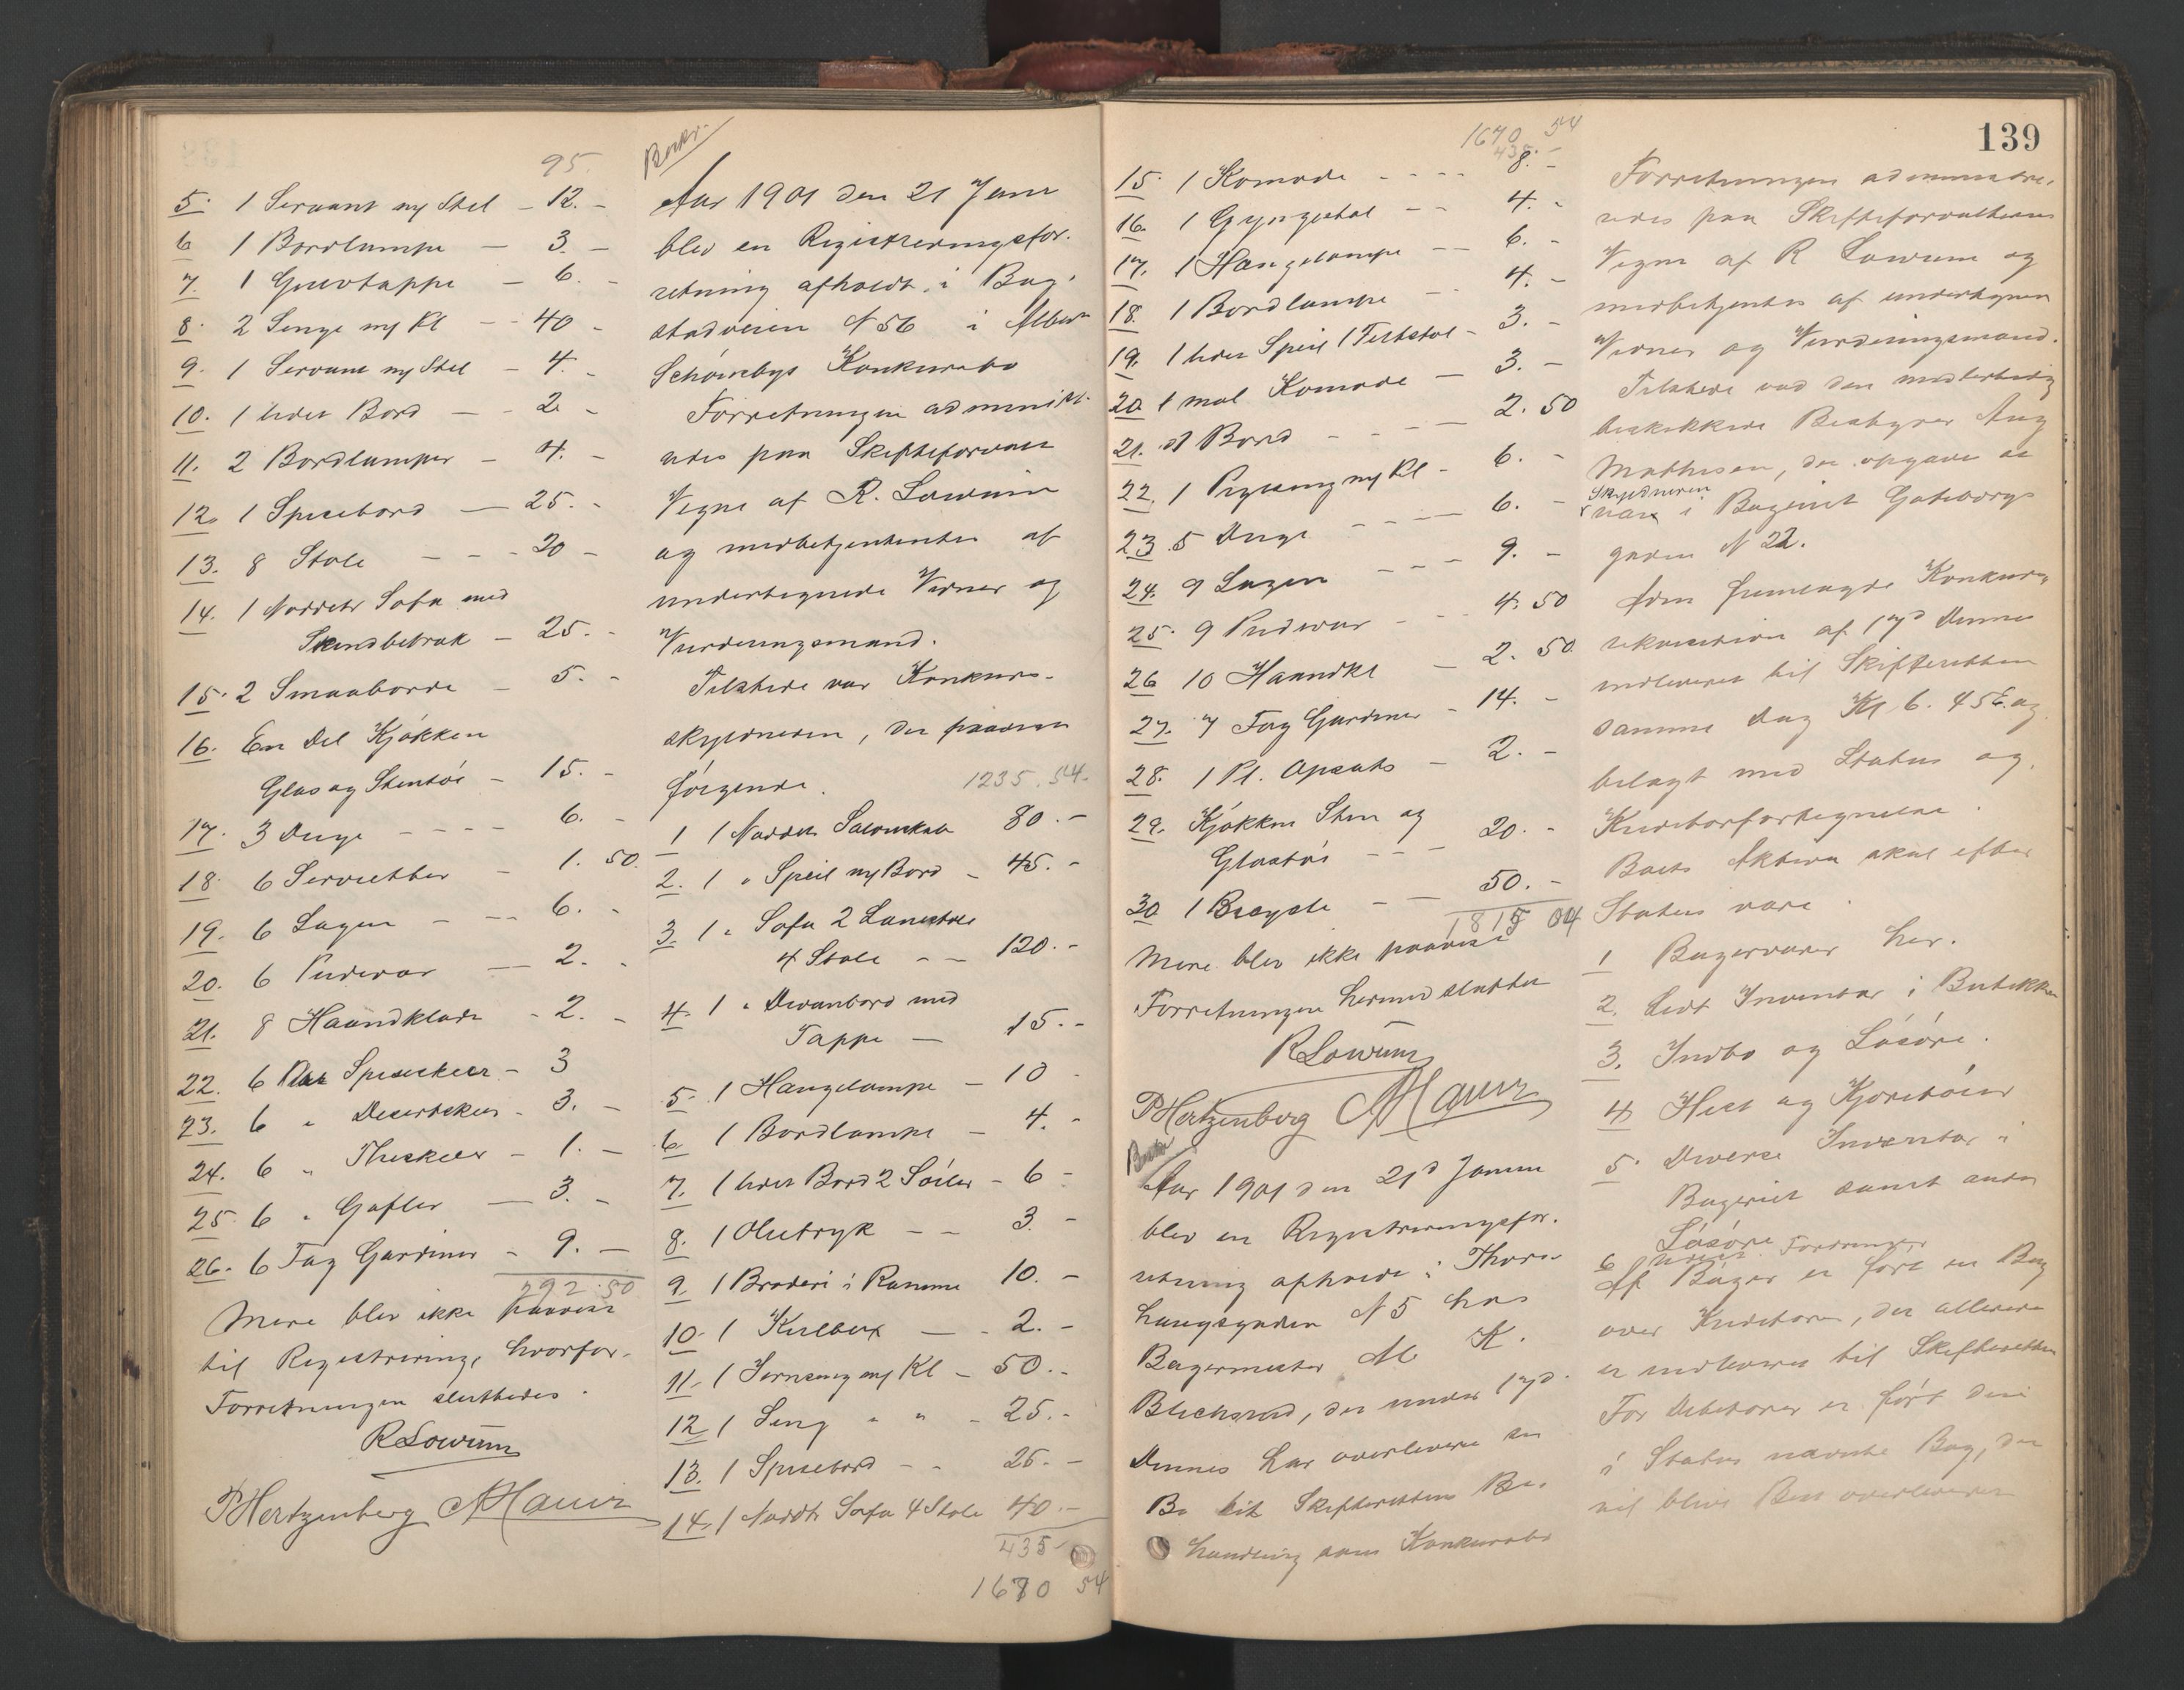 95.
5. 1 Servant m/ Stel – 12. –
6 1 Bordlampe — 3. –
7. 1 Gulvtæppe – 6. –
8. 2 Senge m/ Kl – 40 –
9. 1 Servant m/ Stel – 4. –
10. 1 lidet Bord — 2 –
11. 2 Bordlamper – 4. –
12. 1 Spisebord — 25. –
13. 8 Stole – – – 20 –
14. 1 Nødetr Sofa med
Skindbetræk – 25. –
15. 2 Smaaborde – 5. –
16. En Del Kjøkken
Glas og Stentøi – 15. –
17. 3 Duge – – – – 6. –
18. 6 Servietter – 1. 50.
19. 6 Lagen – – – 6. –
20. 6 Pudevar — 2. –
21. 8 Haandklæde – 2. –
22. 6 Spiseskeer – 3
23. 6 " Desertskeer – 3. –
24. 6 " Theskeer – 1. –
25. 6 " Gafler — 3. –
26. 6 Fag Gardiner – 9. –
292.50
Mere blev ikke paavist
til Registrering, hvorfor
Forretningen sluttedes.
R Lowum
P Hertzenberg
Aar 1901 den 21 Januar
blev en Registreringsfor-
retning afholdt i Byg-
stadveien N 56 i Albert
Schøinbys Konkursbo
Forretningen administ-
redes paa Skifteforvalt
Vegne af R. Lowum
og medbetjentes af
undertegnede Vidner og
Vurderingsmænd.
Tilstede var Konkurs-
skyldneren, der paaviste
følgende. 1235.54.
1 1 Nødetr Salonskab 80. –
2. 1 " Speil m/ Bord – 45. –
3. 1 " Sofa 2 Lænestole
4 Stole – – 120. –
4. 1 " Divanbord med
Tæppe — 15. –
5. 1 Hængelampe – 10 –
6. 1 Bordlampe – 4. –
7. 1 lidet Bord 2 Søiler – 6 –
8. 1 Olietryk – – 3. –
9. 1 Broderi i Ramme 10. –
10. 1 Kulbox — – 2. –
11. 1 Jernseng m/ Kl – 50. –
12. 1 Seng " " – 25. –
13. 1 Spisebord – – 25. –
14. 1 Nødtr Sofa 4 Stole 40. –
435 –
1670 54
139
1670 54
435 –
15. 1 Komode – – – – 8. –
16. 1 Gyngestol – – 4. –
17. 1 Hængelampe – – 6. –
18. 1 Bordlampe – – 4. –
19. 1 lidet Speil 1 Feltstol – 3. –
20. 1 mal Komode – 3. –
21. 1 Bord – – – – 2. 50
22. 1 Pigeseng m/ Kl – 6. –
23. 5 Duge – – – – 6. –
24. 9 Lagen – – – 9. –
25. 9 Pudevar – – – 4. 50
26 10 Haandkl – 2. 50
27. 7 Fag Gardiner – 14. –
28. 1 Pl. Opsats – 2. –
29. Kjøkken Sten og
Glastøi – – – 20. –
30 1 Bicycle – – 50. –
1815 04
Mere blev ikke paavist
Forretningen hermed sluttet
R Lowum
P Hertzenberg
Aar 1901 den 21d Januar
blev en Registreringsfor-
retning afholdt i Thor
N 5 hos
Bagermester M K.
der under 17d
Dennes har overleveret sit
Bo til Skifterettens Be-
handling som Konkursbo
Forretningen administre-
redes paa Skifteforvalterens
Vegne af R Lowum og
medbetjentes af undertegnede
Vidner og Vurderingsmænd.
Tilstede var den midlertidig
beskikkede Bestyrer Aug
Mathisen, der opgave at
Skyldneren
var i Bageriet Gøteborg-
gaden N 22.
Han fremlagde Konkurs
rekvisition af 17d Dennes
indleveret til Skifteretten
samme Dag Kl 6. 45 E. og
belagt med Status og
Kreditorfortegnelse.
Boets Aktiva skal efter
Status være
1 Bagervarer her.
2. Lidt Inventar i Butikken
3. Indbo og Løsøre.
4 Hest og Kjøretøier
5. Diverse Inventar i
Bageriet samt andet
Løsøre
6 Fordringer
Af Bøger er ført en Bog
over Kreditorer, der allerede
er indleveret til Skifteretten
For Debitorer er ført den
i Status nævnte Bog, der
vil blive Boet overleveret